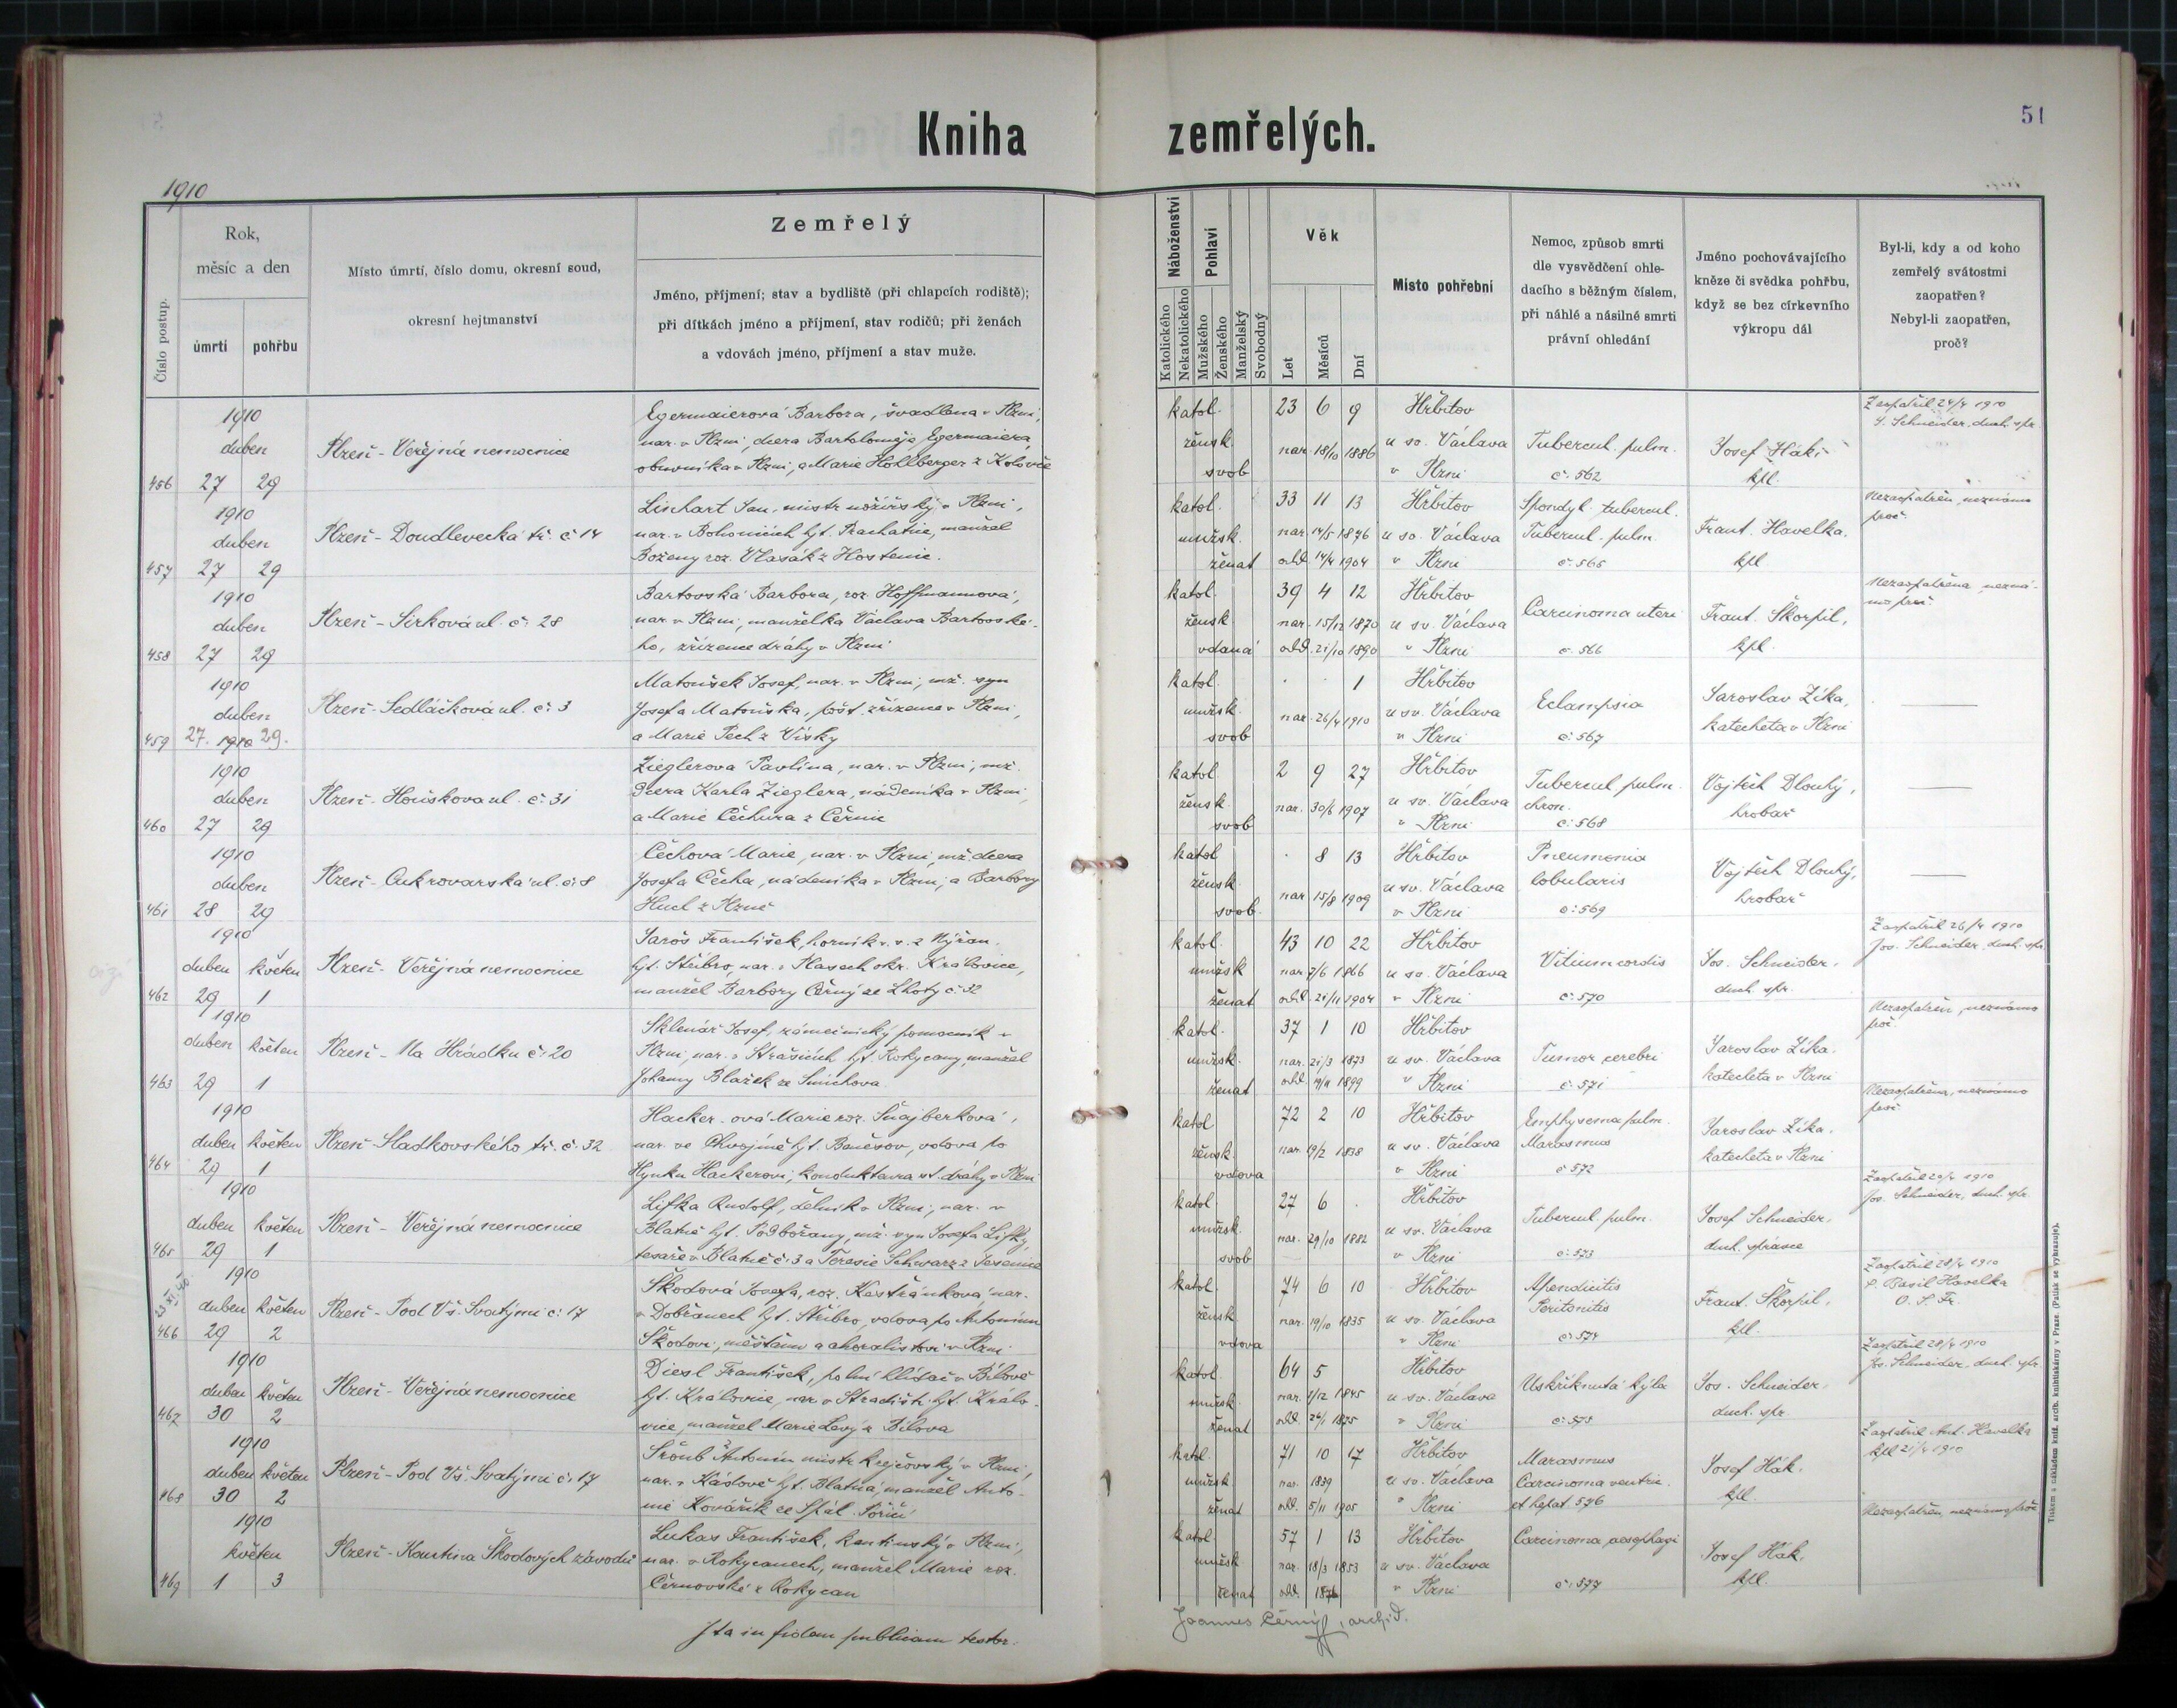 Kniha zemřelých.
51
1910
Číslo postup.
Rok,
měsíc a den
úmrtí
pohřbu
Místo úmrtí, číslo domu, okresní soud,
okresní hejtmanství
Zemřelý
Jméno, příjmení; stav a bydliště (při chlapcích rodiště);
při dítkách jméno a příjmení, stav rodičů; při ženách
a vdovách jméno, příjmení a stav muže.
Náboženství
Katolického
Nekatolického
Pohlaví
Mužského
Ženského
Manželský
Svobodný
Věk
Let
Měsíců
Dní
Místo pohřební
Nemoc, způsob smrti
dle vysvědčení ohle-
dacího s běžným číslem,
při náhlé a násilné smrti
právní ohledání
Jméno pochovávajícího
kněze či svědka pohřbu,
když se bez církevního
výkropu dál
Byl-li, kdy a od koho
zemřelý svátostmi
zaopatřen?
Nebyl-li zaopatřen,
proč?
456
1910
duben
27 29
Plzeň - Veřejná nemocnice
Egermaierová Barbora, švadlena v Plzni,
nar. v Plzni, dcera Bartoloměje Egermaiera,
obuvníka v Plzni, a Marie Hohlberger z
katol.
žensk.
svob
23 6 9
nar. 18/10 1886
Hřbitov
u sv. Václava
v Plzni
Tubercul. pulm.
č. 562
Josef Hák
kpl.
Zaopatřil 24/4 1910
J. Schneider, duch. spr.
457
1910
duben
27 29
Plzeň - Doudlevecká tř. č. 14
Linhart Jan, mistr nožířský v Plzni,
nar. v hjt. Prachatice, manžel
Boženy roz. Vlasák z Hostenic.
katol.
mužsk.
ženat
33 11 13
nar. 14/5 1876
odd. 14/4 1904
Hřbitov
u sv. Václava
v Plzni
Spondyl. tubercul.
Tubercul. pulm.
č. 565
Frant. Havelka,
kpl.
Nezaopatřen, neznámo
proč.
458
1910
duben
27 29
Plzeň - Sirková ul. č. 28
Bartovská Barbora, roz. Hoffmannová,
nar. v Plzni, manželka Václava Bartovské-
ho, zřízence dráhy v Plzni
katol.
žensk.
vdaná
39 4 12
nar. 15/12 1870
odd. 21/10 1890
Hřbitov
u sv. Václava
v Plzni
Carcinoma uteri
č. 566
Frant. Škorpil,
kpl.
Nezaopatřena, nezná-
mo proč.
459
1910
duben
27. 1910 29.
Plzeň - Sedláčková ul. č. 3
Matoušek Josef, nar. v Plzni, mž. syn
Josefa Matouška, pošt. zřízence v Plzni,
a Marie Pech z Vísky
katol.
mužsk.
svob
1
nar. 26/4 1910
Hřbitov
u sv. Václava
v Plzni
Eclampsia
č. 567
Jaroslav Zíka,
katecheta v Plzni
460
1910
duben
27 29
Plzeň - Houškova ul. č. 31
Zieglerova Pavlína, nar. v Plzni, mž.
dcera Karla Zieglera, nádeníka v Plzni,
a Marie Čechura z Černic
katol.
žensk.
svob
2 9 27
nar. 30/6 1907
Hřbitov
u sv. Václava
v Plzni
Tubercul. pulm.
chron.
č. 568
Vojtěch Dlouhý,
hrobař
461
1910
duben
28 29
Plzeň - Cukrovarská ul. č. 8
Čechová Marie, nar. v Plzni, mž. dcera
Josefa Čecha, nádeníka v Plzni, a Barbory
Hucl z Plzně
katol
žensk.
svob.
8 13
nar 15/8 1909
Hřbitov
u sv. Václava
v Plzni
Pneumonia
lobularis
č. 569
Vojtěch Dlouhý,
hrobař
462
1910
duben květen
29 1
Plzeň - Veřejná nemocnice
Jaroš František, horník v. v. z Nýřan,
hjt. Stříbro, nar. v Plasech okr. Kralovice,
manžel Barbory Černý ze Lhoty č. 32
katol.
mužsk
ženat
43 10 22
nar 7/6 1866
odd. 21/11 1904
Hřbitov
u sv. Václava
v Plzni
Vitium cordis
č. 570
Jos. Schneider,
duch. spr.
Zaopatřil 26/4 1910
Jos. Schneider, duch. spr.
463
1910
duben květen
29 1
Plzeň - Na Hrádku č. 20
Sklenář Josef, zámečnický pomocník v
Plzni, nar. v Strašicích hjt. Rokycany, manžel
Johany Blažek ze Smíchova.
katol.
mužsk.
ženat
37 1 10
nar. 21/3 1873
1899
Hřbitov
u sv. Václava
v Plzni
Tumor cerebri
č. 571
Jaroslav Zíka,
katecheta v Plzni
Nezaopatřen, neznámo
proč.
464
1910
duben květen
29 1
Plzeň - Sladkovského tř. č. 32
Hacker-ová Marie roz. Šnajberková,
nar. ve Chvojině hjt. Benešov, vdova po
Hynku Hackerovi, konduktéra st. dráhy v Plzni
katol
žensk.
vdova
72 2 10
nar. 19/2 1838
Hřbitov
u sv. Václava
v Plzni
Emphysema pulm.
Marasmus
č 572
Jaroslav Zíka,
katecheta v Plzni
Nezaopatřena, neznámo
proč
465
1910
duben květen
29 1
Plzeň - Veřejná nemocnice
Lifka Rudolf, dělník v Plzni, nar. v
hjt. Podbořany, mž. syn Josefa Lifky,
tesaře v č. 3 a Terezie Schwarz z Jesenice
katol
mužsk.
svob
27 6 .
nar. 29/10 1882
Hřbitov
u sv. Václava
v Plzni
Tubercul. pulm.
č. 573
Josef Schneider,
duch. správce
Zaopatřil 20/4 1910
Jos. Schneider, duch. spr.
466
1910
duben květen
29 2
Plzeň - Pod Vš. Svatými č. 17
Škodová Josefa, roz. Kaštránková, nar.
v Dobřanech hjt. Stříbro, vdova po Antonínu
Škodovi, měšťanu a choralistovi v Plzni
katol.
žensk.
vdova
74 6 10
nar. 19/10 1835
Hřbitov
u sv. Václava
v Plzni
Apendicitis
Peritonitis
č. 574
Frant. Škorpil,
kpl.
Zaopatřil 28/4 1910
P. Basil Havelka
O. S. Fr.
467
1910
duben květen
30 2
Plzeň - Veřejná nemocnice
Diesl František, polní hlídač v Bílově
hjt. Kralovice, nar. v hjt. Kralo-
vice, manžel Marie Levý z Bílova
katol.
mužsk.
ženat
64 5
nar. 1/12 1845
odd. 1875
Hřbitov
u sv. Václava
v Plzni
Uskřiknutá kýla
č. 575
Jos. Schneider,
duch. spr.
Zaopatřil 28/4 1910
Jos. Schneider, duch. spr.
468
1910
duben květen
30 2
Plzeň - Pod Vš. Svatými č. 17
Šroub Antonín mistr krejčovský v Plzni,
nar. v hjt. Blatná, manžel Anto-
nie Kovářík ze Spál. Poříčí
katol.
mužsk
ženat
71 10 17
nar. 1839
odd. 5/11 1905
Hřbitov
u sv. Václava
v Plzni
Marasmus
Carcinoma ventric.
et hepat. 576
Josef Hák,
kpl.
Zaopatřil Ant. Havelka
kpl 21/4 1910
469
1910
květen
1 3
Plzeň - Kantina Škodových závodů
Lukas František, kantinský v Plzni,
nar. v Rokycanech, manžel Marie roz.
Černovské z Rokycan
katol.
mužsk
ženat
57 1 13
nar. 18/3 1853
odd.
Hřbitov
u sv. Václava
v Plzni
Carcinoma oesophagi
č. 577
Josef Hák,
kpl.
Nezaopatřen, neznámo proč
Ita in fidem publicam testor:
Joannes Černý, archid.
Tiskem a nákladem kníž. arcib. knihtiskárny v Praze. (Patisk se vyhrazuje).